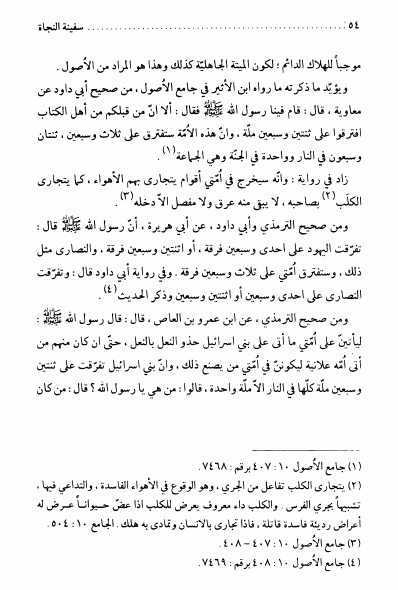 ٥٤ ........................................................ سفينة النجاة
موجباً للهلاك الدائم ؛ لكون الميتة الجاهليّة كذلك وهذا هو المراد من الاُصول .
ويؤيّد ما ذكرته ما رواه ابن الأثير في جامع الأصول ، من صحيح أبي داود عن
معاوية ، قال : قام فينا رسول الله ﷺ فقال : ألا انّ من قبلكم من أهل الكتاب
افترقوا على ثنتين وسبعين ملّة ، وانّ هذه الاُمّة ستفترق على ثلاث وسبعين ، ثنتان
وسبعون في النار وواحدة في الجنّة وهي الجماعة(١) .
زاد في رواية : وانّه سيخرج في اُمّتي أقوام يتجارى بهم الأهواء ، كما يتجارى
الكلَب(٢) بصاحبه ، لا يبق منه عرق ولا مفصل الاّ دخله(٣) .
ومن صحيح الترمذي وأبي داود ، عن أبي هريرة ، أنّ رسول الله ﷺ قال :
تفرّقت اليهود على احدى وسبعين فرقة ، أو اثنتين وسبعين فرقة ، والنصارى مثل
ذلك ، وستفترق اُمّتي على ثلاث وسبعين فرقة . وفي رواية أبي داود قال : وتفرّقت
النصارى على احدى وسبعين أو اثنتين وسبعين وذكر الحديث(٤) .
ومن صحيح الترمذي ، عن ابن عمرو بن العاص ، قال : قال رسول الله ﷺ :
ليأتينّ على اُمّتي ما أتى على بني اسرائيل حذو النعل بالنعل ، حتّى ان كان منهم من
أتى اُمّه علانية ليكوننّ في اُمّتي من يصنع ذلك ، وانّ بني اسرائيل تفرّقت على ثنتين
وسبعين ملّة كلّها في النار الاّ ملّة واحدة ، قالوا : من هي يا رسول الله ؟ قال : من كان
(١) جامع الاُصول ١٠ : ٤٠٧ برقم : ٧٤٦٨.
(٢) يتجارى الكلب تفاعل من الجري ، وهو الوقوع في الأهواء الفاسدة ، والتداعي فيها ،
تشبيهاً بجري الفرس . والكلب داء معروف يعرض للكلب اذا عضّ حيواناً عرض له
أعراض رديئة فاسدة قاتلة ، فاذا تجارى بالانسان وتمادى به هلك . الجامع ١٠ : ٥٠٤ .
(٣) جامع الاُصول ١٠ : ٤٠٧ – ٤٠٨.
(٤) جامع الاُصول ١٠ : ٤٠٨ برقم : ٧٤٦٩.